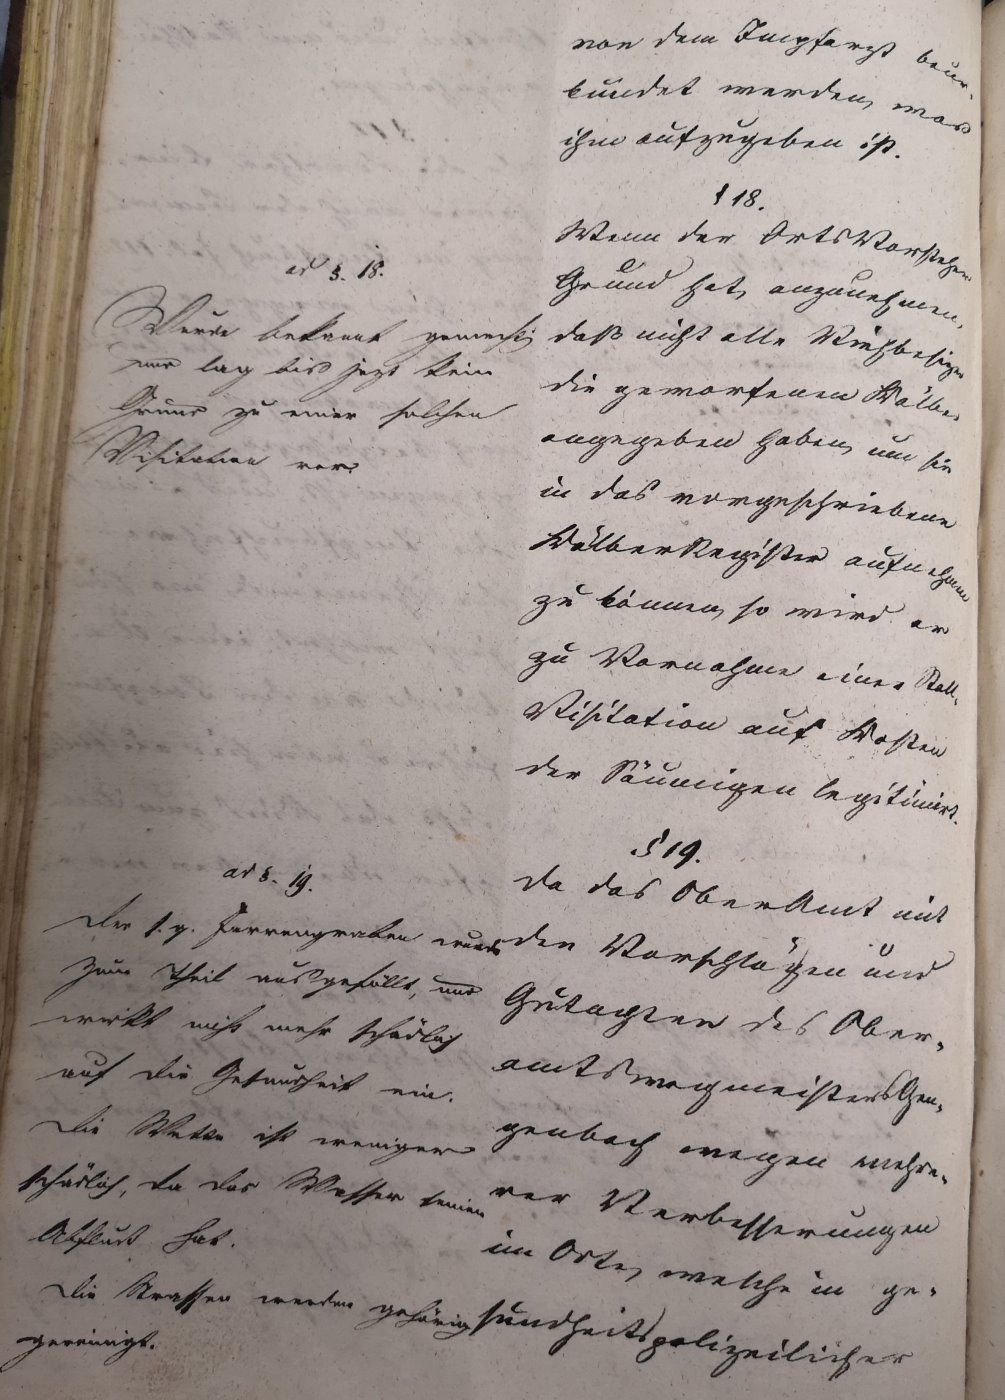 von dem Impfarzt beur-
kundet werden, was
ihm aufzugeben ist.
§ 18.
Wenn der OrtsVorsteher
Grund hat, anzunehmen,
daß nicht alle Viehbesizer
die geworfenen Kälber
angegeben haben, um sie
in das vorgeschriebene
KälberRegister aufnehmen
zu können, so wird er
zu Vornahme einer Stall-
Visitation auf Kosten
der Säumigen legitimirt.
§ 19.
Da das OberAmt mit
den Vorschlägen und
Gutachten des Ober-
amtswegmeisters Gen-
genbach wegen mehre-
rer Verbesserungen
im Orte, welche in ge-
sundheitspolizeilicher
ad §. 18.
Wurde bekannt gemacht;
nur lag bis jezt kein
Grund zu einer solchen
Visitation vor.
ad §. 19.
Der s. g. Farrengraben wurde
zum Theil ausgefüllt, und
wirkt nicht mehr schädlich
auf die Gesundheit ein.
Die Wette ist weniger
schädlich, da das Wasser seinen
Abfluß hat.
Die Strassen werden gehörig
gereinigt.